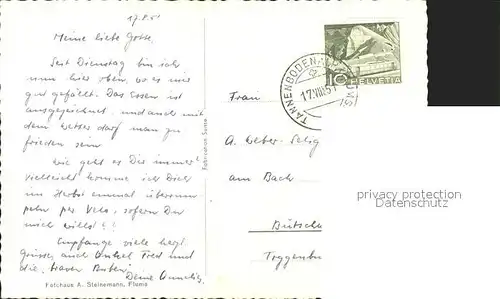 17.8.51
Meine liebe Gotte,
Seit Dienstag bin ich
nun hier oben, wo es mir
gut gefällt. Das Essen ist
ausgezeichnet, und auch mit
dem Wetter darf man zu
frieden sein.
Wie geht es Dir immer?
Vielleicht komme ich Dich
im Herbst einmal
per Velo, sofern Du
mich willst!
Empfange viele herzl.
Grüsse, auch Onkel Fred und
die braven Buben
Deine
Fotohaus A. Steinemann, Flums
Fabrication Suisse
HELVETIA
10
TANNENBODEN
17.VIII.51
Frau
A. Weber-
am Bach
Bütsch
Toggenbu
privacy protection
Datenschutz